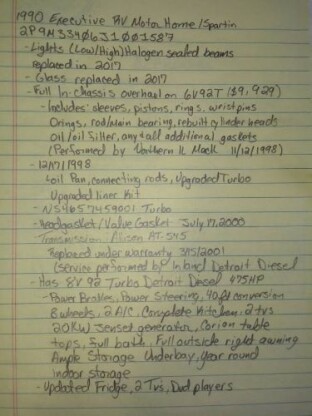 1990 Executive RV Motor Home / Spartin
2P9M33406J1001587
- Lights (Low/High) Halogen sealed beams
replaced in 2017
- Glass replaced in 2017
- Full In-chassis overhaul on 6V92T ($9,929)
- Includes: sleeves, pistons, rings, wristpins
Orings, rod/main bearing, rebuilt cylinder heads
Oil/oil filter, any & all additional gaskets
(Performed by Northern IL Mack 11/12/1998)
- 12/17/1998
Loil Pan, connecting rods, Upgraded Turbo
Upgraded liner Kit
- NS4657459001 Turbo
- Headgasket/Valve Gasket July 17, 2000
Transmission - Alison AT-545
Replaced under warranty 3/15/2001
(Service performed by Inland Detroit Diesel
- Has 8V 92 Turbo Detroit Diesel 475HP
- Power Brakes, Power Steering, 40ft conversion
8 wheels, 2 A/C, Complete Kitchen, 2 tvs
20KW Jenset generator, Corian table
tops, Full bath, Full outside right awning
Ample Storage Underbay, year round
indoor storage
- Updated Fridge, 2 Tvs, Dvd players